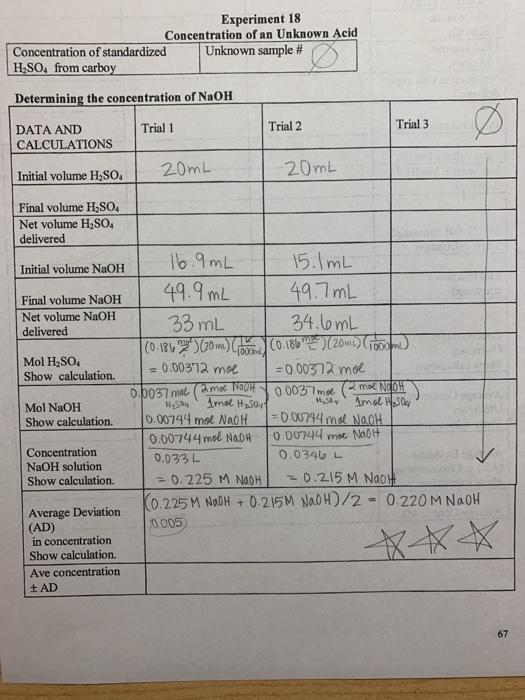 Experiment 18
Concentration of an Unknown Acid
Concentration of standardized
H₂SO₄ from carboy
Unknown sample #
Determining the concentration of NaOH
DATA AND
CALCULATIONS
Trial 1
Trial 2
Trial 3
Initial volume H₂SO₄
20mL
20mL
Final volume H₂SO₄
Net volume H₂SO₄
delivered
Initial volume NaOH
16.9mL
15.1mL
Final volume NaOH
49.9mL
49.7mL
Net volume NaOH
delivered
33mL
34.6mL
Mol H₂SO₄
Show calculation.
(0.186 mol/L)(20mL)(1L/1000mL)
= 0.00372 mol
(0.186 mol/L)(20mL)(1/1000mL)
= 0.00372 mol
Mol NaOH
Show calculation.
0.0037 mol H₂SO₄ (2 mol NaOH / 1mol H₂SO₄)
0.00744 mol NaOH
0.0037 mol H₂SO₄ (2 mol NaOH / 1mol H₂SO₄)
= 0.00744 mol NaOH
Concentration
NaOH solution
Show calculation.
0.00744 mol NaOH
0.033 L
= 0.225 M NaOH
0.00744 mol NaOH
0.0346 L
= 0.215 M NaOH
Average Deviation
(AD)
in concentration
Show calculation.
(0.225M NaOH + 0.215M NaOH)/2 = 0.220 M NaOH
0.005
Ave concentration
± AD
67